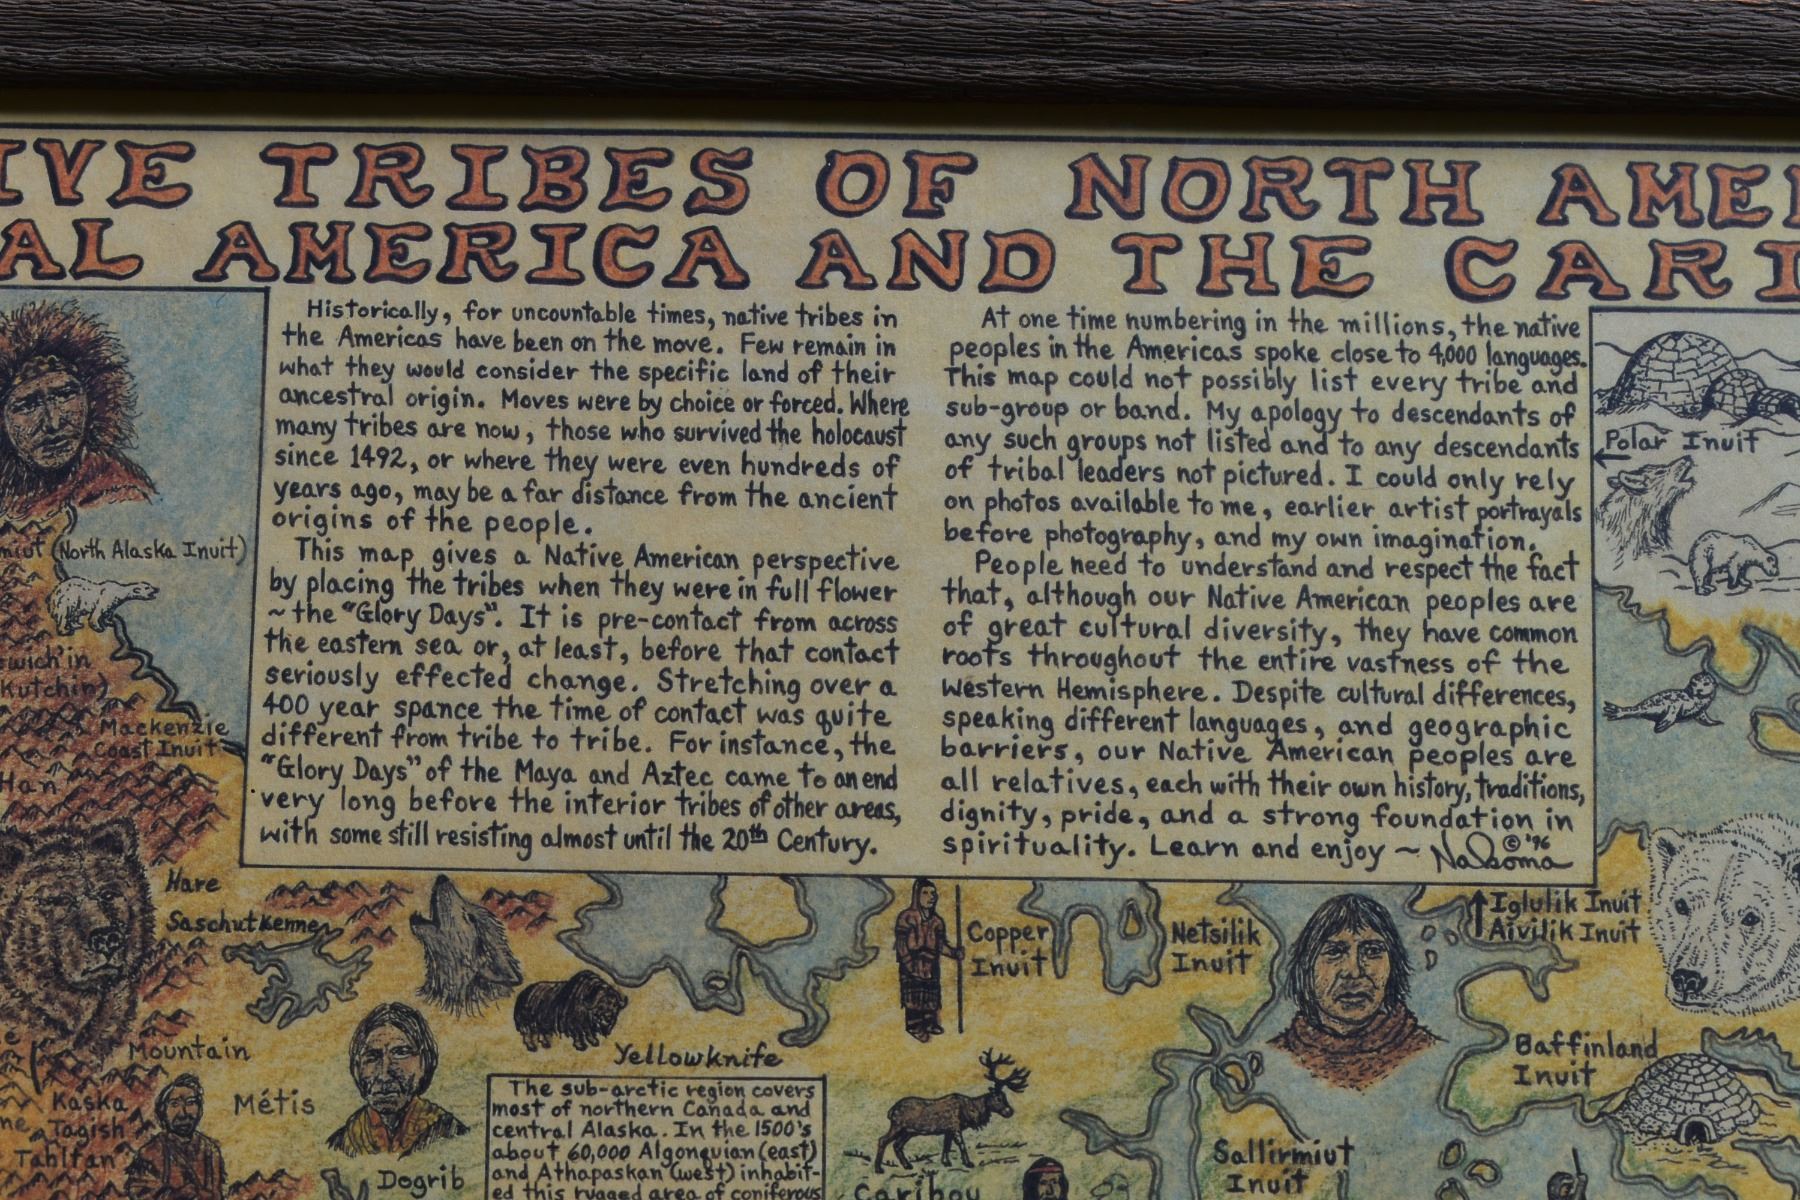 IVE TRIBES OF NORTH AMER
AL AMERICA AND THE CARI
Historically, for uncountable times, native tribes in
the Americas have been on the move. Few remain in
what they would consider the specific land of their
ancestral origin. Moves were by choice or forced. Where
many tribes are now, those who survived the holocaust
since 1492, or where they were even hundreds of
years ago, may be a far distance from the ancient
origins of the people.
This map gives a Native American perspective
by placing the tribes when they were in full flower
~ the "Glory Days". It is pre-contact from across
the eastern sea or, at least, before that contact
seriously effected change. Stretching over a
400 year spance the time of contact was quite
different from tribe to tribe. For instance, the
"Glory Days" of the Maya and Aztec came to an end
very long before the interior tribes of other areas,
with some still resisting almost until the 20th Century.
At one time numbering in the millions, the native
peoples in the Americas spoke close to 4,000 languages.
This map could not possibly list every tribe and
sub-group or band. My apology to descendants of
any such groups not listed and to any descendants
of tribal leaders not pictured. I could only rely
on photos available to me, earlier artist portrayals
before photography, and my own imagination.
People need to understand and respect the fact
that, although our Native American peoples are
of great cultural diversity, they have common
roots throughout the entire vastness of the
Western Hemisphere. Despite cultural differences,
speaking different languages, and geographic
barriers, our Native American peoples are
all relatives, each with their own history, traditions,
dignity, pride, and a strong foundation in
spirituality. Learn and enjoy ~
© '96
Polar Inuit
miut (North Alaska Inuit)
wich'in
Kutchin)
Mackenzie
Coast Inuit
Han
Hare
Saschutkenne
Copper
Inuit
Netsilik
Inuit
Iglulik Inuit
Aivilik Inuit
Mountain
Yellowknife
Baffinland
Inuit
Kaska
Tagish
Tahltan
Métis
Dogrib
The sub-arctic region covers
most of northern Canada and
central Alaska. In the 1500's
about 60,000 Algonquian (east)
and Athapaskan (west) inhabit-
ed this rugged area of coniferous
Caribou
Sallirmiut
Inuit